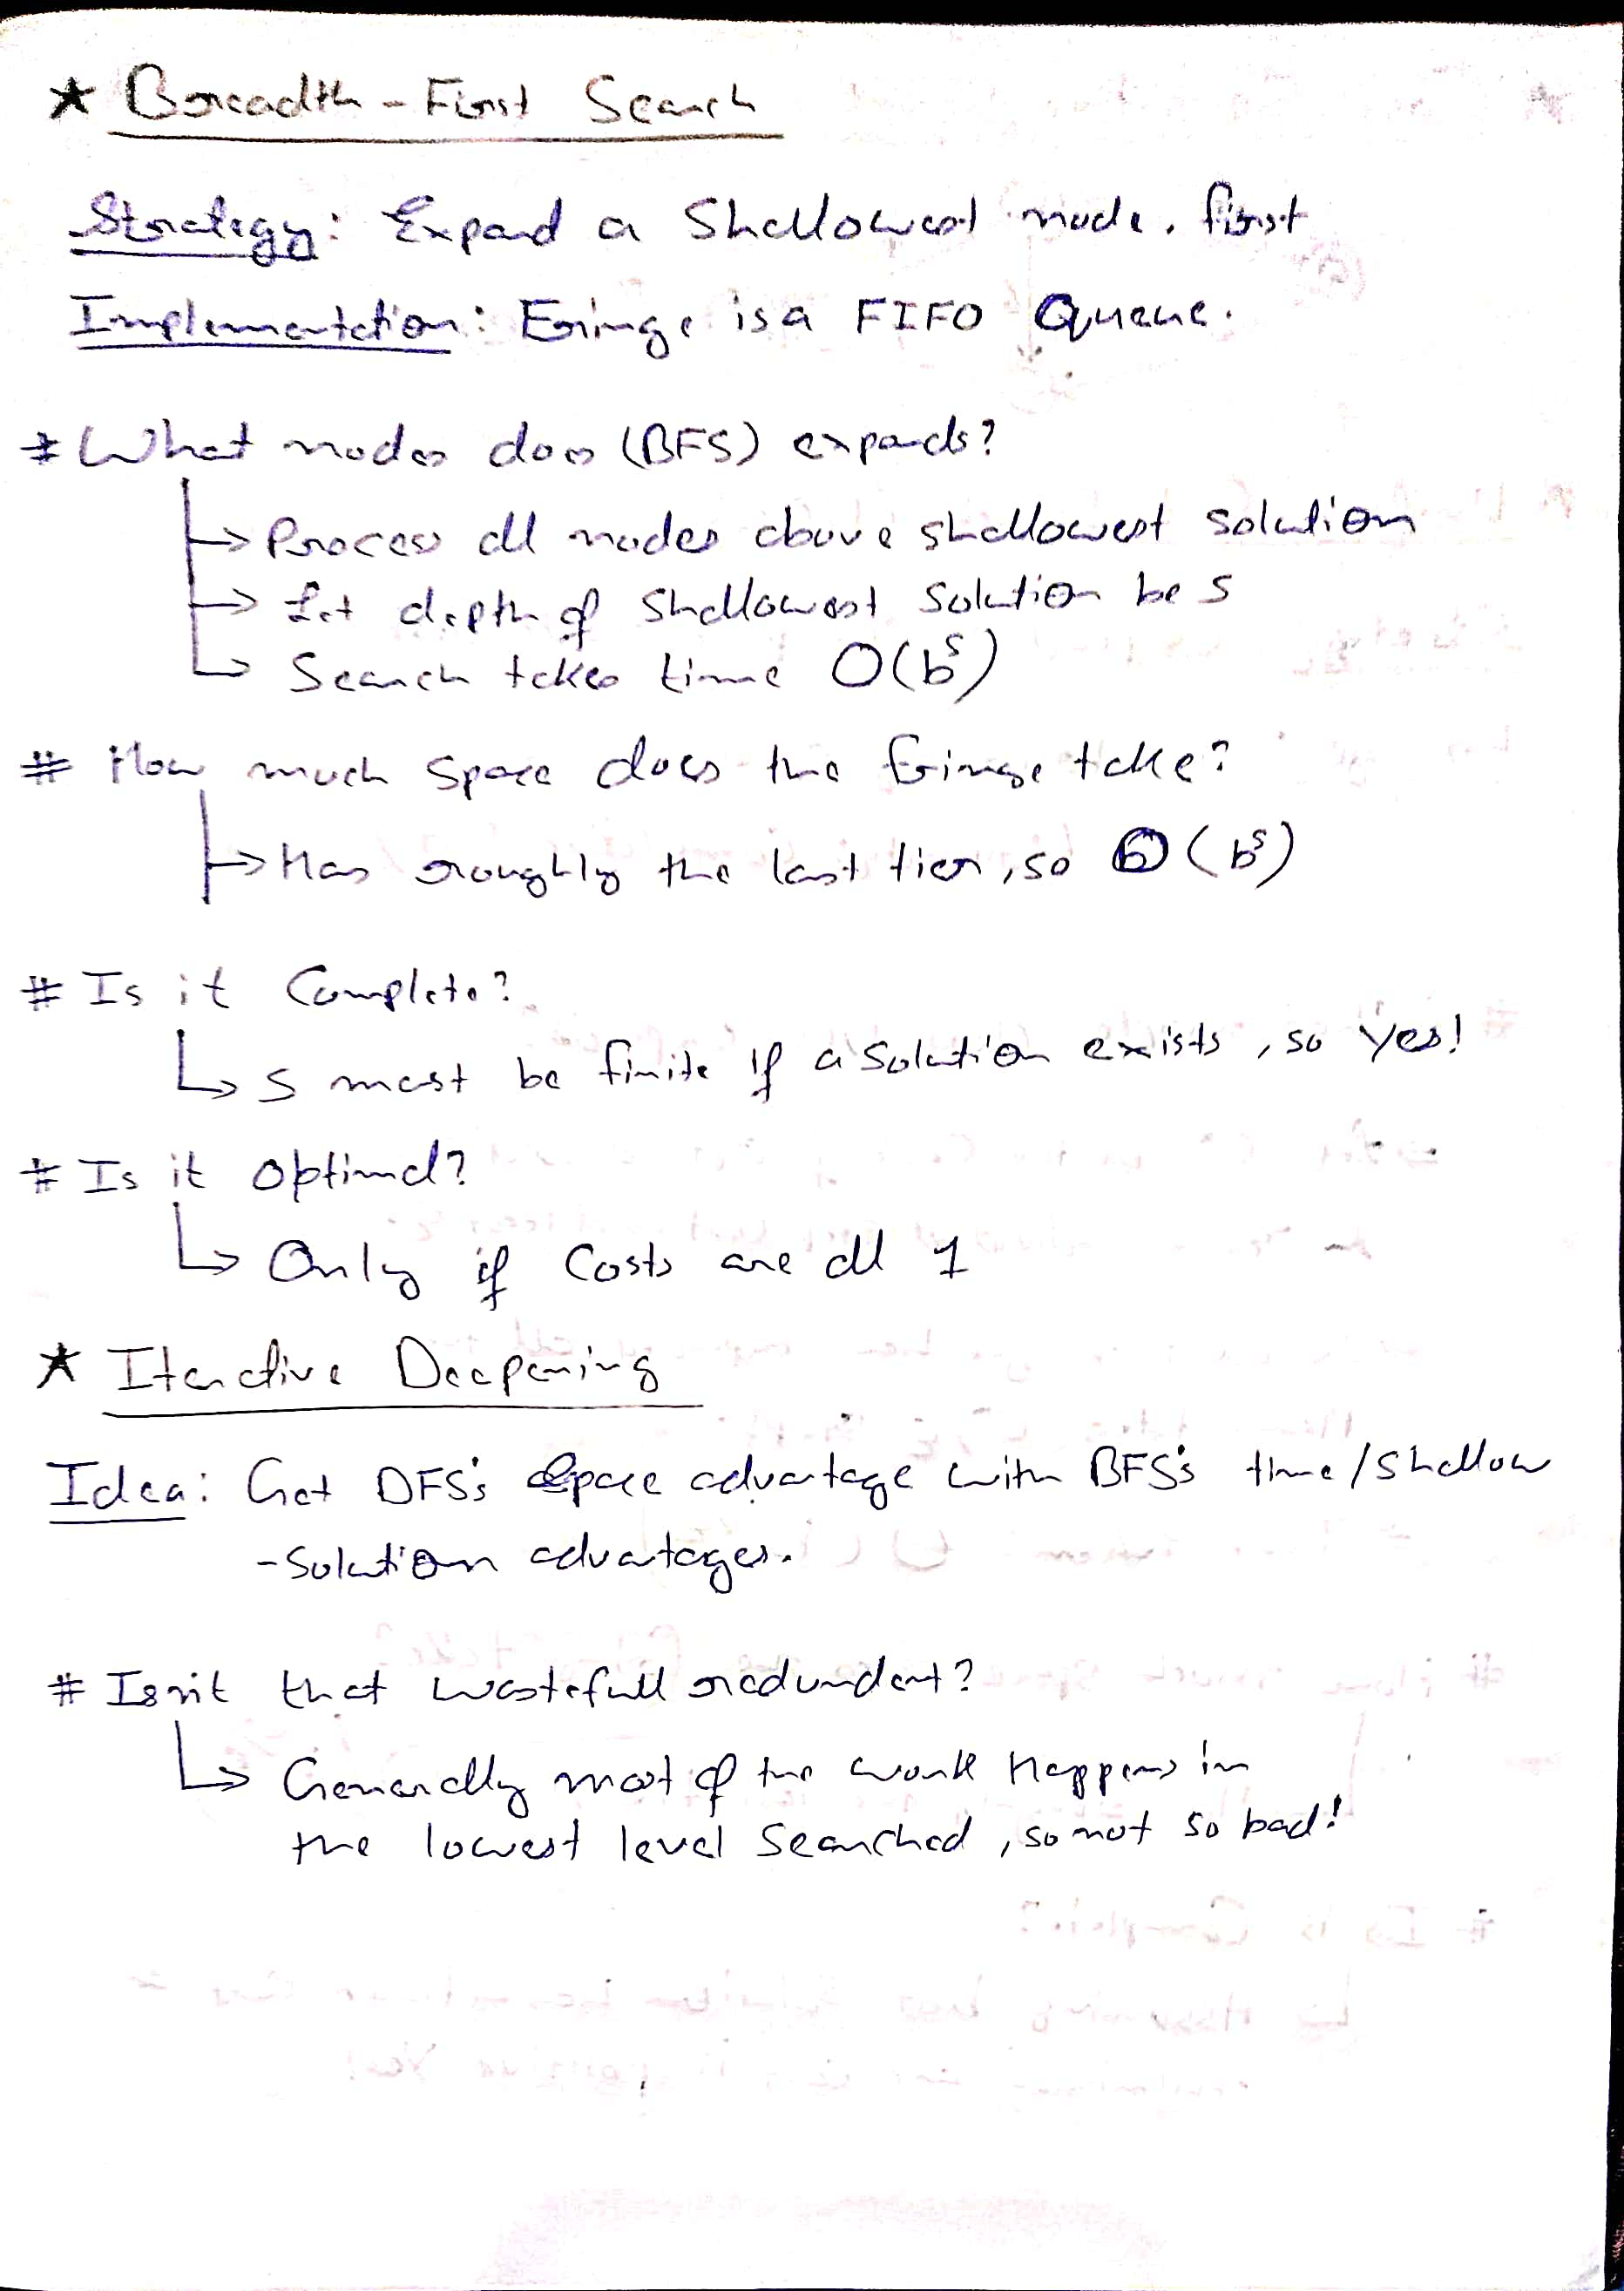 ★ Breadth-First Search
Strategy: Expand a Shallowest node. first
Implementation: Fringe is a FIFO Queue.
# What nodes does (BFS) expands?
→ Process all nodes above shallowest solution
→ Let depth of shallowest solution be s
→ Search takes time O(b^s)
# How much space does the fringe take?
→ Has roughly the last tier, so O(b^s)
# Is it Complete?
→ s must be finite if a solution exists, so Yes!
# Is it optimal?
→ Only if Costs are all 1
★ Iterative Deepening
Idea: Get DFS's space advantage with BFS's time/shallow
-Solution advantages.
# Isn't that wastefull redundant?
→ Generally most of the work Happens in
the lowest level Searched, so not so bad!